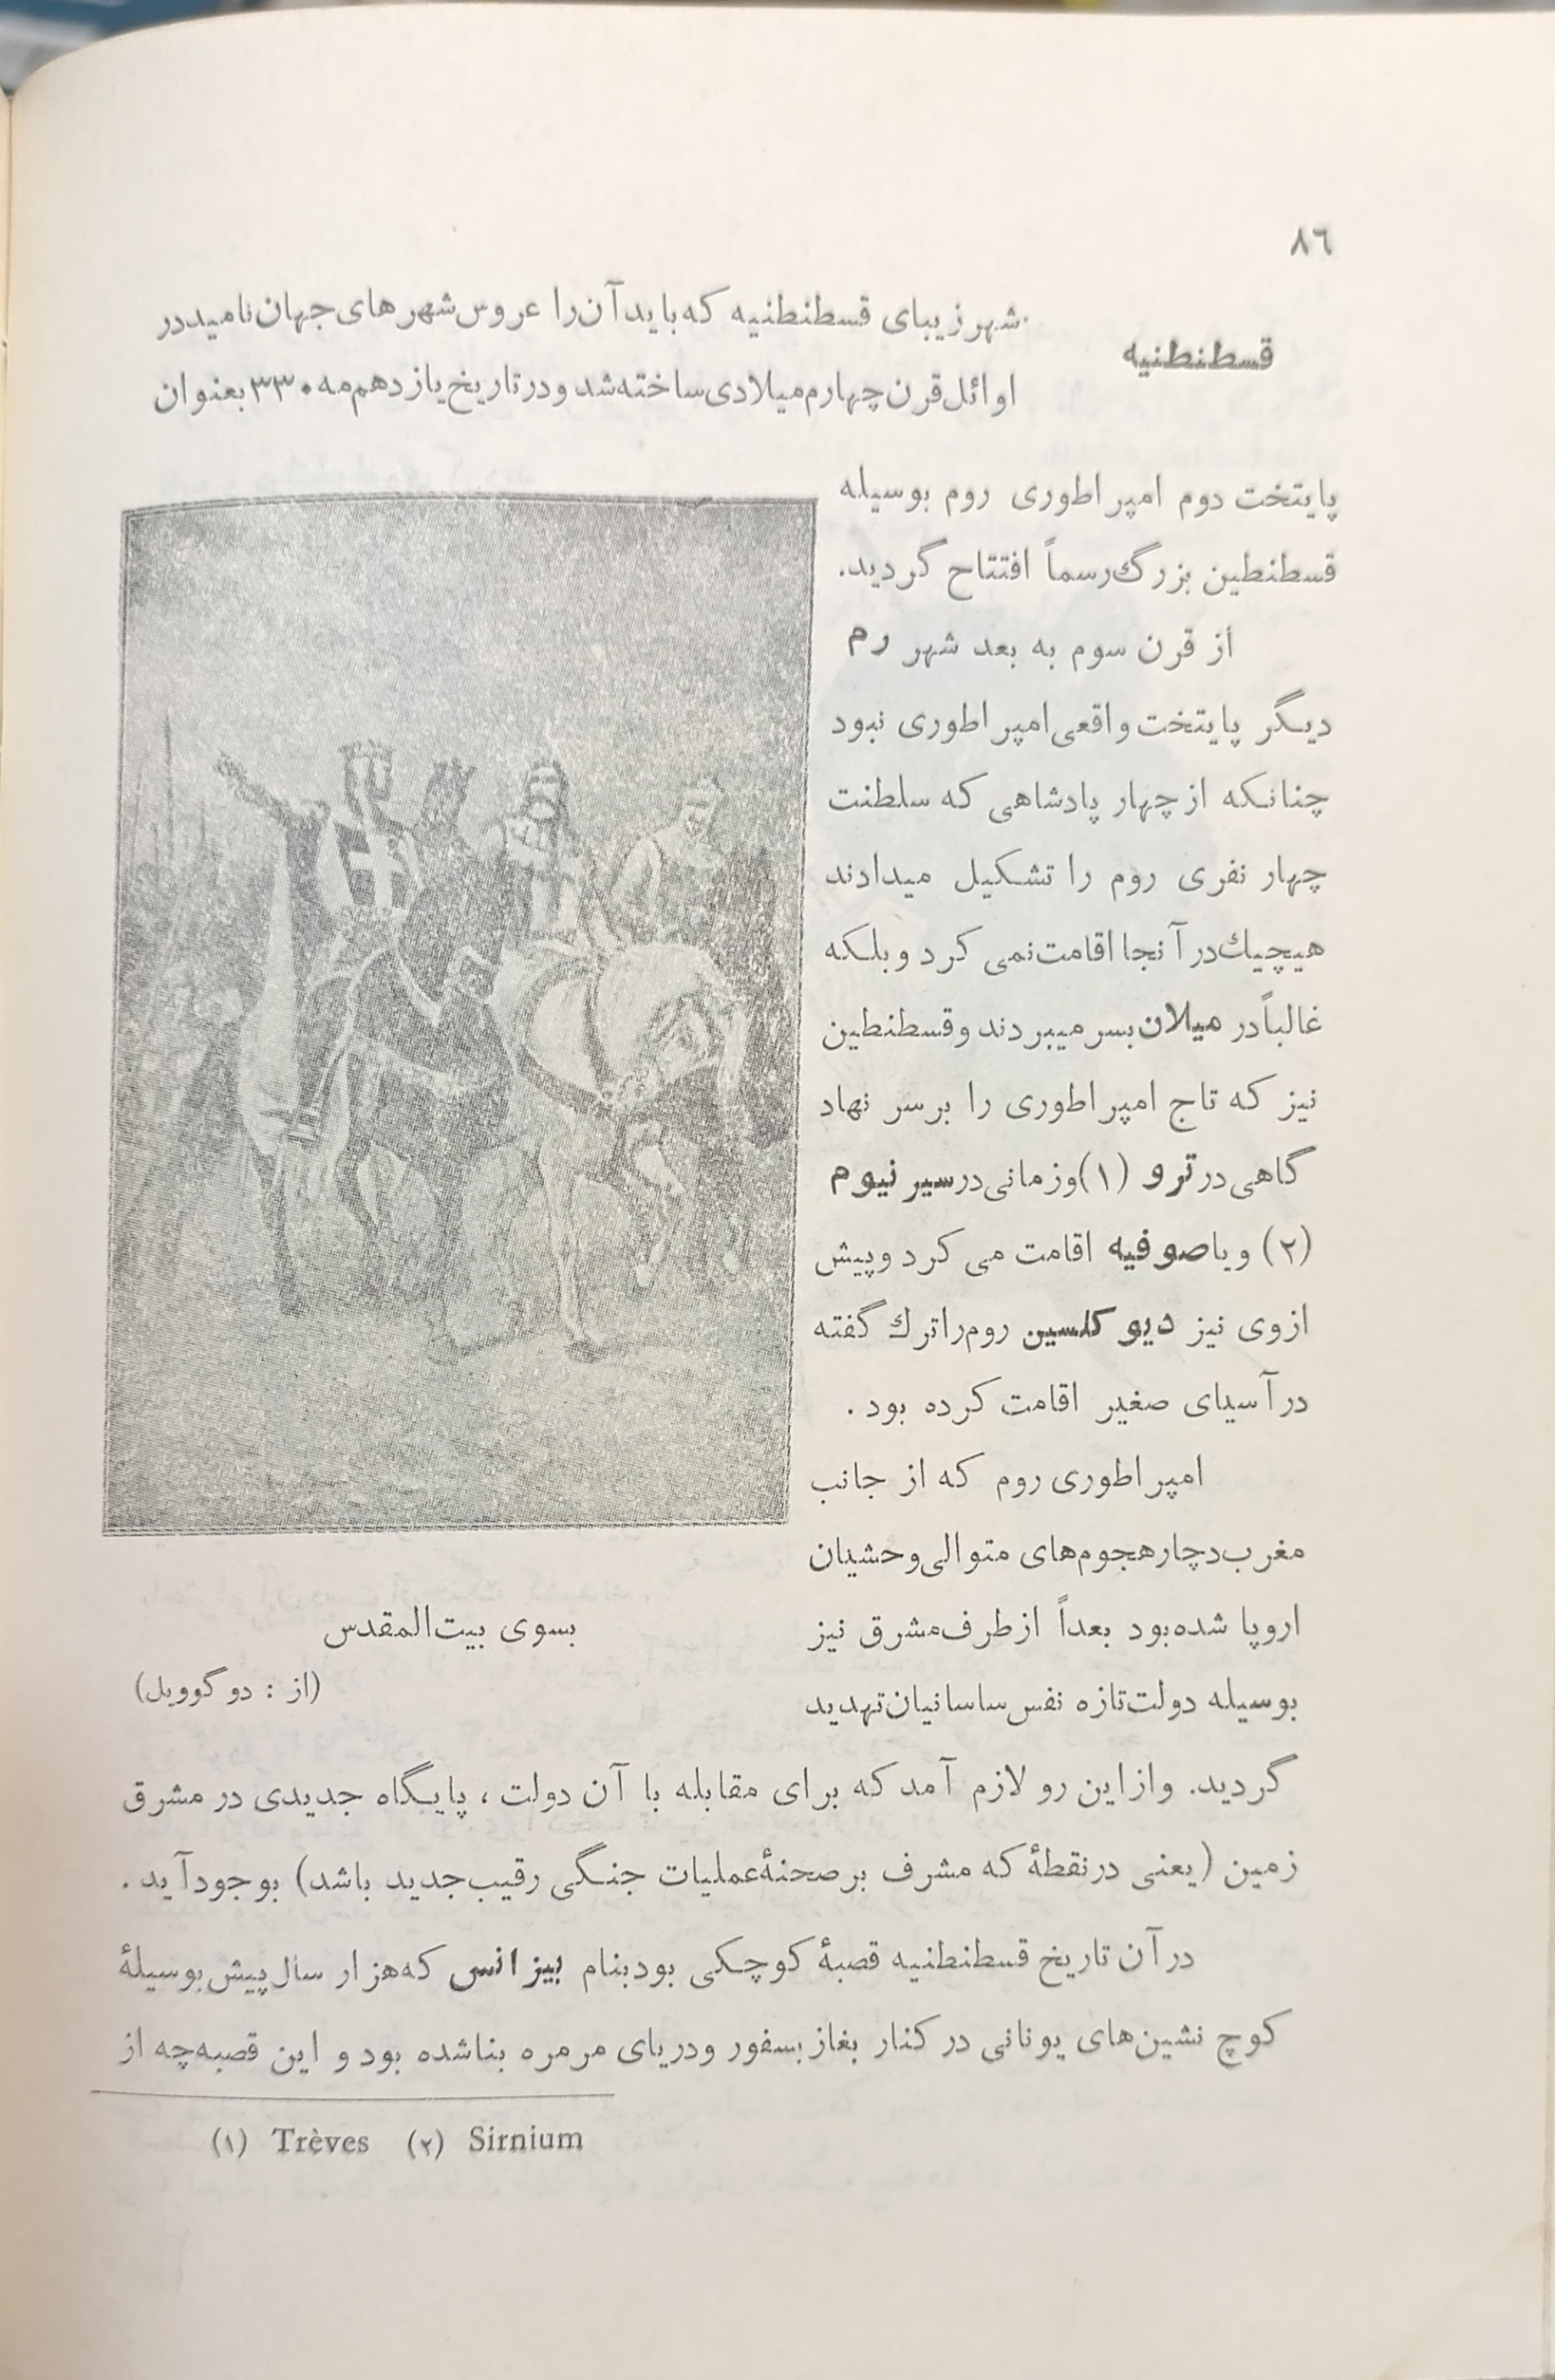 ۸۶
قسطنطنیه
شهر زیبای قسطنطنیه که باید آن را عروس شهرهای جهان نامید در
اوائل قرن چهارم میلادی ساخته شد و در تاریخ یازدهم مه ۳۳۰ بعنوان
پایتخت دوم امپراطوری روم بوسیله
قسطنطین بزرگ رسماً افتتاح گردید.
از قرن سوم به بعد شهر رم
دیگر پایتخت واقعی امپراطوری نبود
چنانکه از چهار پادشاهی که سلطنت
چهار نفری روم را تشکیل میدادند
هیچیك در آنجا اقامت نمی کرد و بلکه
غالباً در میلان بسر میبردند و قسطنطین
نیز که تاج امپراطوری را برسر نهاد
گاهی در ترو (۱) و زمانی در سیرنیوم
(۲) و یا صوفیه اقامت می کرد و پیش
از وی نیز دیوکلسین روم را ترك گفته
در آسیای صغیر اقامت کرده بود .
امپراطوری روم که از جانب
مغرب دچار هجوم‌های متوالی وحشیان
اروپا شده بود بعداً از طرف مشرق نیز
بوسیله دولت تازه نفس ساسانیان تهدید
بسوی بیت‌المقدس
(از : دو گوویل)
گردید. و از این رو لازم آمد که برای مقابله با آن دولت ، پایگاه جدیدی در مشرق
زمین (یعنی در نقطهٔ که مشرف بر صحنهٔ عملیات جنگی رقیب جدید باشد) بوجود آید .
در آن تاریخ قسطنطنیه قصبهٔ کوچکی بود بنام بیزانس که هزار سال پیش بوسیلهٔ
کوچ نشین‌های یونانی در کنار بغاز بسفور و دریای مرمره بنا شده بود و این قصبه چه از
(۱) Trèves (۲) Sirnium